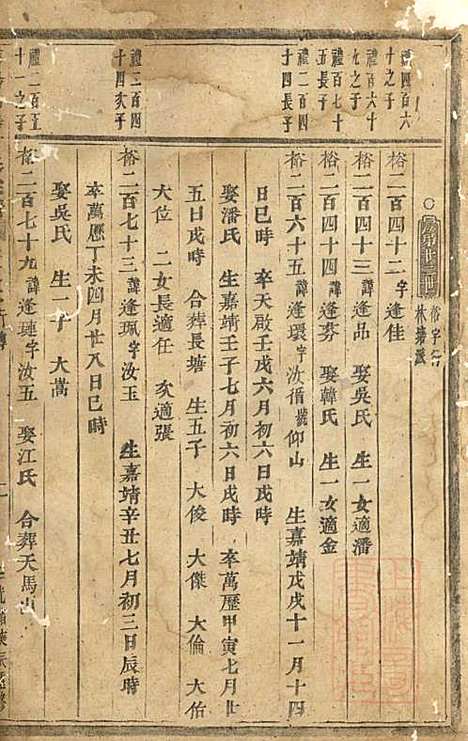 裕字行
林塘派
禮四百六
十之子
裕二百四十二字逢佳
禮百六十
九之子
裕二百四十三諱逢品 娶吳氏 生一女適潘
禮百七十
五長子
裕二百四十四諱逢芬 娶韓氏 生一女適金
禮二百四
十四長子
裕二百六十五諱逢環字汝循號仰山 生嘉靖戊戌十一月十四
日巳時 卒天啟壬戌六月初六日戌時
娶潘氏 生嘉靖壬子七月初六日戌時 卒萬歷甲寅七月廿
五日戌時 合葬長塘 生五子 大俊 大傑 大倫 大佑
大位 二女長適任 次適張
禮二百四
十四次子
裕二百七十三諱逢珮字汝玉 生嘉靖辛丑七月初三日辰時
卒萬歷丁未四月廿八日巳時
娶吳氏 生一子 大嵩
禮二百五
十一之子
裕二百七十九諱逢璉字汝五 娶江氏 合葬天馬山